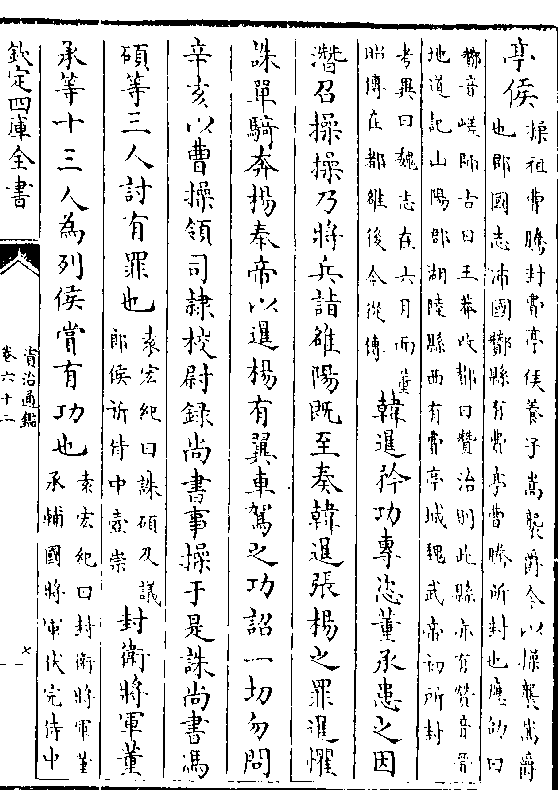 亭侯
操祖曹騰封費亭侯養子嵩襲爵今以操襲嵩爵
也郡國志沛國酇縣有費亭曹騰所封也應劭曰
酇音嵯師古曰王莽改酇曰贊治則此縣亦有贊音晉
地道記山陽郡湖陸縣西有費亭城魏武帝初所封
考異曰魏志在六月而董
昭傳在都雒後今從傳
韓暹矜功專恣董承患之因
潛召操操乃將兵詣雒陽既至奏韓暹張楊之罪暹懼
誅單騎奔楊奉帝以暹楊有翼車駕之功詔一切勿問
辛亥以曹操領司隷校尉録尚書事操于是誅尚書馮
碩等三人討有罪也
袁宏紀曰誅碩及議
郎侯祈侍中壺崇
封衛將軍董
承等十三人為列侯賞有功也
袁宏紀曰封衛將軍董
承輔國將軍伏完侍中
欽定四庫全書
資治通鑑
卷六十二